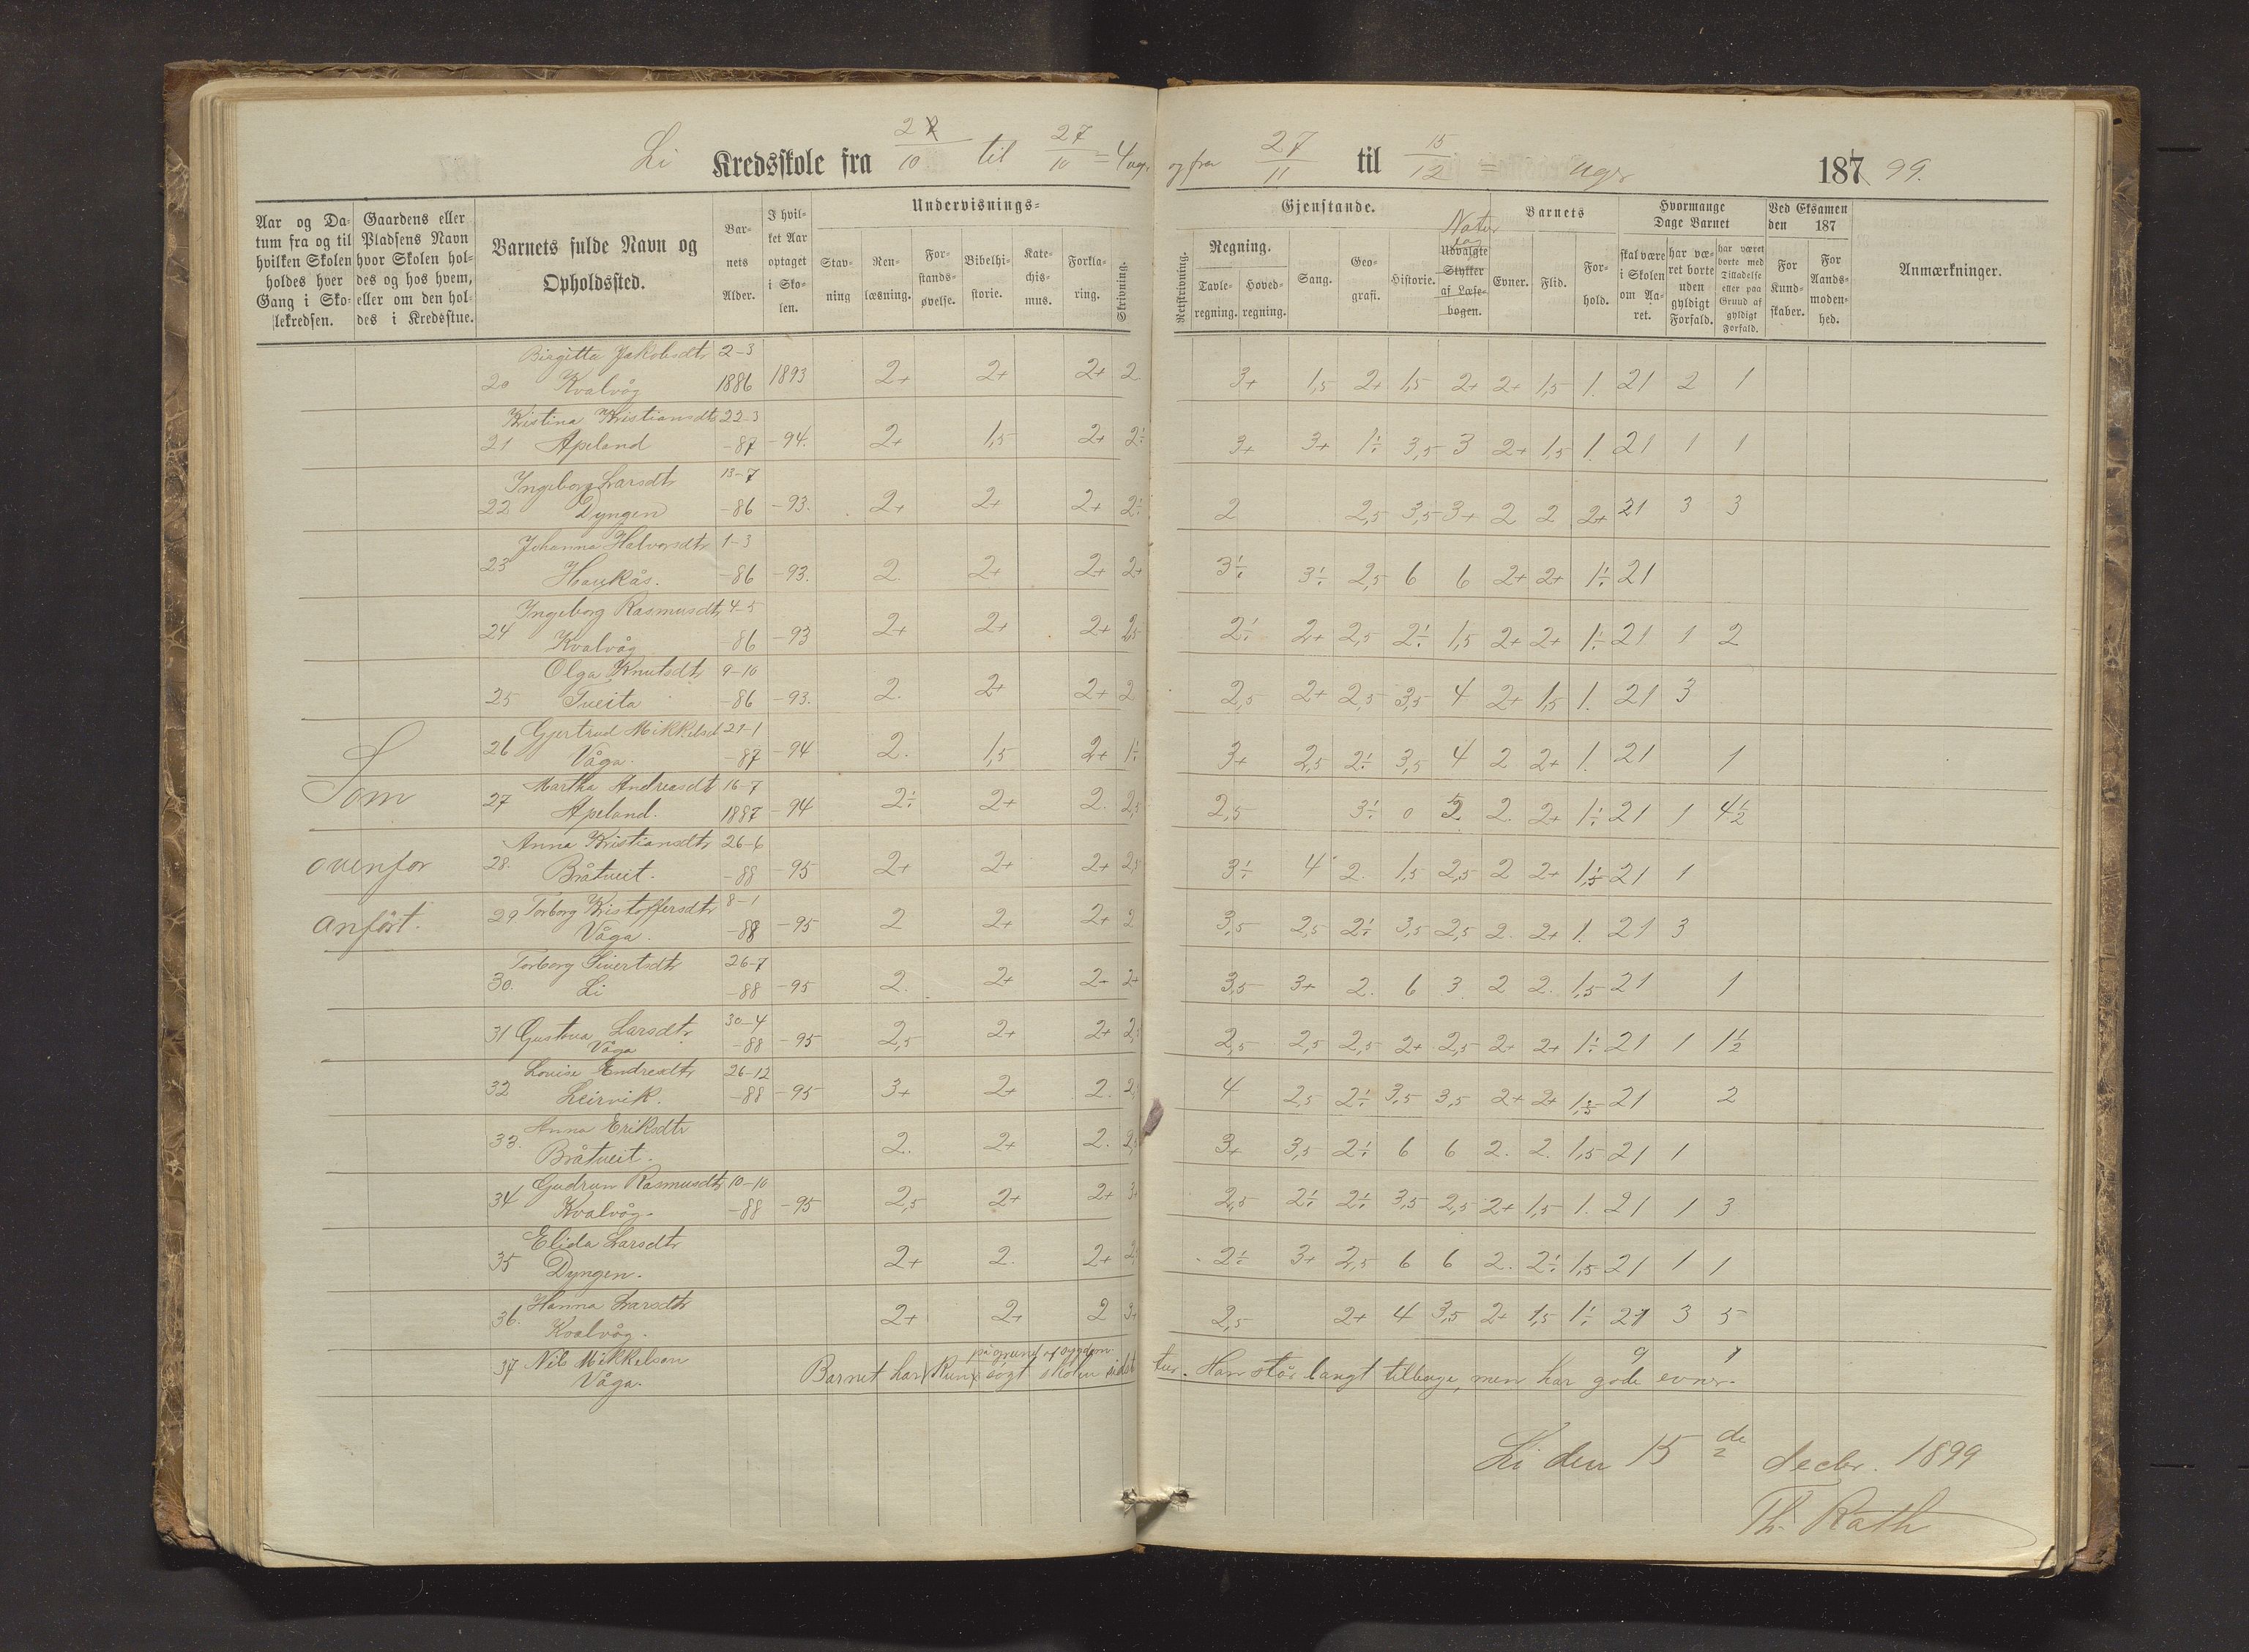 Li Kredsskole fra 2/10 til 27/10 = 4 ug. og fra 27/11 til 15/12 = Uger 187 99.
Aar og Datum fra og til hvilken Skolen holdes hver Gang i Skolekredsen.
Gaardens eller Pladsens Navn hvor Skolen holdes og hos hvem, eller om den holdes i Kredsstue.
Barnets fulde Navn og Opholdssted.
Barnets Alder.
I hvilket Aar optaget i Skolen.
Undervisnings-
Stavning
Renlæsning.
Forstandsøvelse.
Bibelhistorie.
Katechismus.
Forklaring.
Skrivning.
Gjenstande.
Retskrivning.
Regning.
Tavleregning.
Hovedregning.
Sang.
Geografi.
Historie.
Natur
Udvalgte Stykker af Læsebogen.
Barnets
Evner.
Flid.
Forhold.
Hvormange Dage Barnet
skal være i Skolen om Aaret.
har været borte uden gyldigt Forfald.
har været borte med Tilladelse eller paa Grund af gyldigt Forfald.
Ved Eksamen den 187
For Kundskaber.
For Aandsmodenhed.
Anmærkninger.
20 Birgitta Jakobsdtr Kvalvåg 2-3 1886 1893 2+ 2+ 2+ 2 3+ 1,5 2+ 1,5 2+ 2+ 1,5 1. 21 2 1
21 Kristina Kristiansdtr Apeland 22-3 -87 -94. 2+ 1,5 2+ 2÷ 3+ 3+ 1÷ 3,5 3 2+ 1,5 1. 21 1 1
22 Ingeborg Larsdtr Dyngen 13-7 -86 -93. 2+ 2+ 2+ 2÷ 2 2,5 3,5 3+ 2 2 2+ 21 3 3
23 Johanna Halvorsdtr Haukås. 1-3 -86 -93. 2. 2+ 2+ 2+ 3÷ 3÷ 2,5 6 6 2+ 2+ 1÷ 21
24 Ingeborg Rasmusdtr Kvalvåg 4-5 -86 -93 2+ 2+ 2+ 2,5 2÷ 2+ 2,5 2÷ 1,5 2+ 2+ 1÷ 21 1 2
25 Olga Knutsdtr Tveita 9-10 -86 -93. 2. 2+ 2+ 2 2,5 2+ 2,5 3,5 4 2+ 1,5 1. 21 3
26 Gjertrud Mikkelsd Våga. 21-1 -87 -94 2. 1,5 2+ 1÷ 3+ 2,5 2÷ 3,5 4 2 2+ 1. 21 1
Som
27 Martha Andreasdt Apeland. 16-7 1887 -94 2÷ 2+ 2. 2,5 2,5 3÷ 0 2. 2+ 1÷ 21 1 4½
ovenfor
28. Anna Kristiansdtr Bråtveit. 26-6 -88 -95 2+ 2+ 2+ 2,5 3÷ 4 2. 1,5 2,5 2 2+ 1,5 21 1
anført.
29 Torborg Kristoffersdtr Våga. 8-1 -88 -95 2 2+ 2+ 2 3,5 2,5 2÷ 3,5 2,5 2. 2+ 1. 21 3
30. Torborg Sivertsdtr Li 26-7 -88 -95 2. 2+ 2+ 2+ 3,5 3+ 2. 6 3 2 2. 1,5 21 1
31 Gustava Larsdtr Våga 30-4 -88 -95 2,5 2+ 2+ 2,5 2,5 2,5 2,5 2+ 2,5 2+ 2+ 1÷ 21 1 1½
32 Lovise Endresdtr Leirvik. 26-12 -88 -95 3+ 2+ 2. 2,5 4 2,5 2÷ 3,5 3,5 2+ 2+ 1,5 21 2
33. Anna Eriksdtr Bråtveit. 2. 2+ 2. 2,5 3+ 3,5 2÷ 6 6 2. 2. 1,5 21 1
34 Gudrun Rasmusdtr Kvalvåg. 10-10 -88 -95 2,5 2+ 2+ 3+ 2,5 2÷ 2÷ 3,5 2,5 2+ 1,5 1. 21 1 3
35 Elida Larsdtr Dyngen. 2+ 2. 2+ 2÷ 3+ 2,5 6 6 2. 2÷ 1,5 21 1 1
36. Hanna Larsdtr Kvalvåg. 2+ 2+ 2 3+ 2,5 2+ 4 3,5 2+ 1,5 1÷ 21 3 5
på grund af sygdom
37 Nils Mikkelsen Våga. Barnet har kun søgt skolen sidst Han står langt tilbage, men har gode evner.
Li den 15de decbr. 1899
Th. Rath